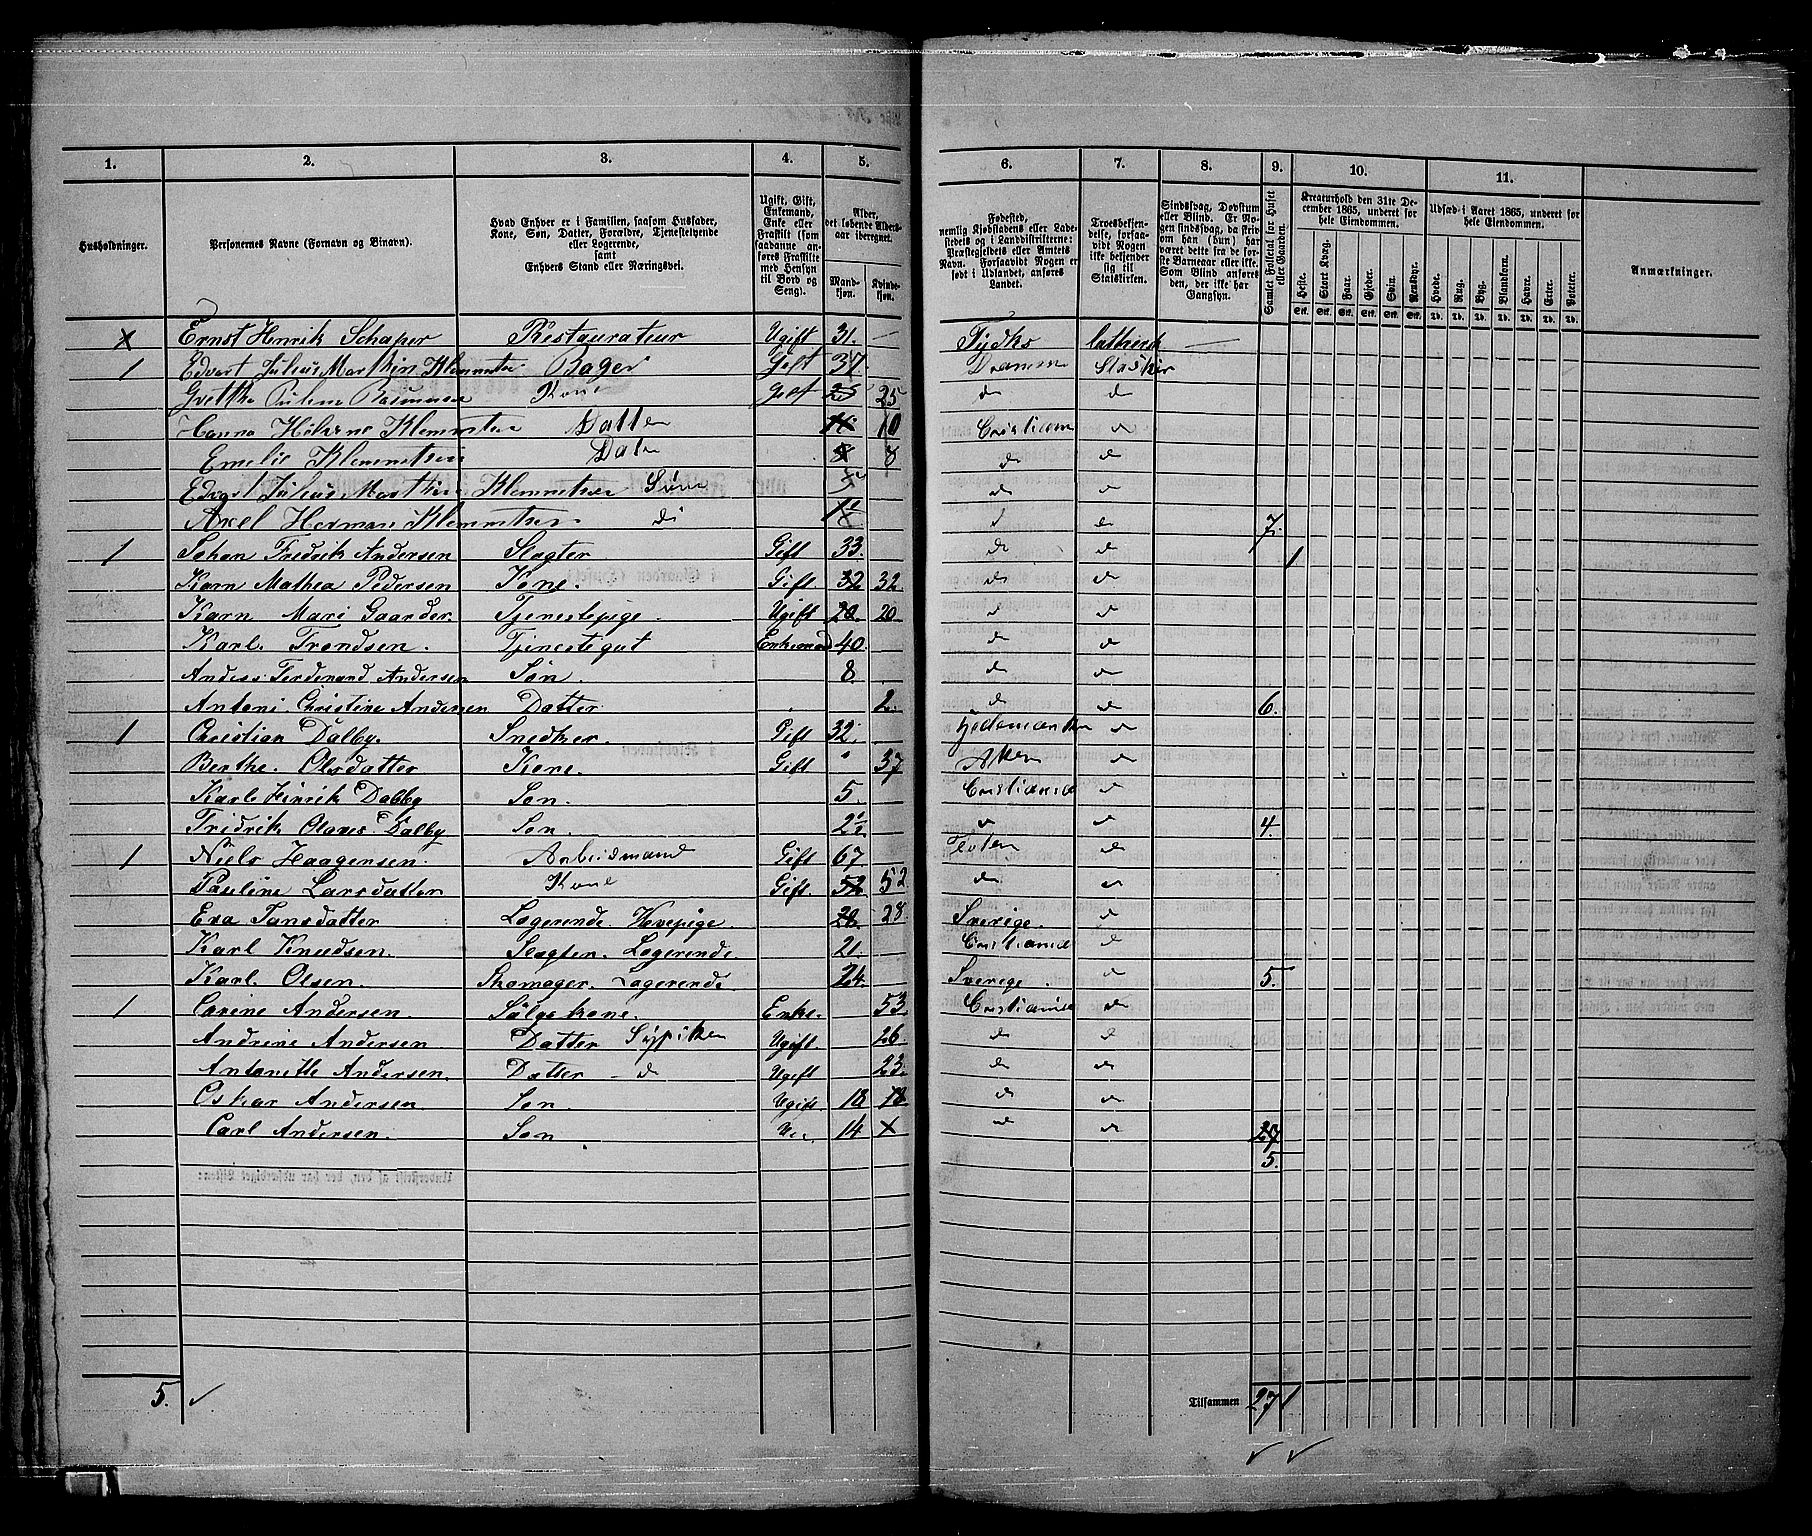 1. 2. 3. 4. 5. 6. 7. 8. 9. 10. 11.
Husholdninger.
Personernes Navne (Fornavn og Binavn).
Hvad Enhver er i Familien, saasom Husfader, Kone, Søn, Datter, Forældre, Tjenestetyende eller Logerende, samt Enhvers Stand eller Næringsvei.
Ugift, Gift, Enkemand, Enke eller Fraskilt (som saadanne anføres Fraskilte med Hensyn til Bord og Seng).
Alder, det løbende Aldersaar iberegnet.
Mandkjøn. Kvindekjøn.
Fødested, nemlig Kjøbstadens eller Ladestedets og i Landdistrikterne: Præstegjeldets eller Amtets Navn. Forsaavidt Nogen er født i Udlandet, anføres Landet.
Troesbekjendelse, forsaavidt Nogen ikke bekjender sig til Statskirken.
Sindssvag, Døvstum eller Blind. Er Nogen sindssvag, da skriv om han (hun) har været dette fra de første Barneaar eller ikke. Som Blind anføres den, der ikke har Gangsyn.
Samlet Folketal for Huset eller Gaarden.
Kreaturhold den 31te December 1865, underet for hele Eiendommen.
Heste. Stort Kvæg. Faar. Gjeder. Svin. Rensdyr.
Udsæd i Aaret 1865, underet for hele Eiendommen.
Hvede. Rug. Byg. Blandkorn. Havre. Erter. Poteter.
Anmærkninger.
Stk. Stk. Stk. Stk. Stk. Stk. Td. Td. Td. Td. Td. Td. Td.
x Ernst Henrik Schaper Restaurateur Ugift 31. —
1 Edvart Julius Marthin Klemmetsen Bager Gift Slaskir
Kone Gift 25 d d
Hanna Helene Klemmetsen Datter 10 Cristiania d
Emelie Klemmetsen Dater 8 8 d d
Edvart Julius Marthin Klemmetsen Sønn d d
Axel Herman Klemmetsen di d d 7.
1 Johan Fredrik Andersen Slagter. Gift 33. d d 1
Karn Mathea Pedersen Kone. Gift. 32 32. d d
Karn Mari Gaarder. Tjenestepige. Ugift 20. 20. d d
Karl. Trondsen. Tjenestegut Enkemand 40. d d
Anders Ferdinand Andersen Søn. 8. d d
Antoni Christine Andersen Datter. 2. d d 6.
1 Christian Dalby. Snedker. Gift 32. d
Berthe. Olsdatter Kone. Gift " 37 d
Karl Hinrik Dalby Søn. 5. Cristiania d
Fridrik Olaves Dalby Søn. 2½ d d 4.
1 Niels Haagensen. Arbeidmand Gift 67 Toten d
Pauline Larsdatter Kone Gift. 52 52 d d
Eva Jansdatter Logerende. Vævepige. 28. 28 Sverige. d
Karl Knudsen. Slagter. Logerende 21. Cristiania d
Karl. Olsen. Skomager. Logerende 24. Sverige. d 5.
1 Carine Andersen. Sælgekone. Enke. 53. Cristiania d
Andrine Andersen Datter Sypiken Ugift. 26. d d
Antonette Andersen. Datter - d Ugift 23. d d
Oskar Andersen. Søn. Ugift. 18 18 d d
Carl Andersen. Søn 14 x d d 27
5.
5. ✓ Tilsammen 27 1
✓ ✓